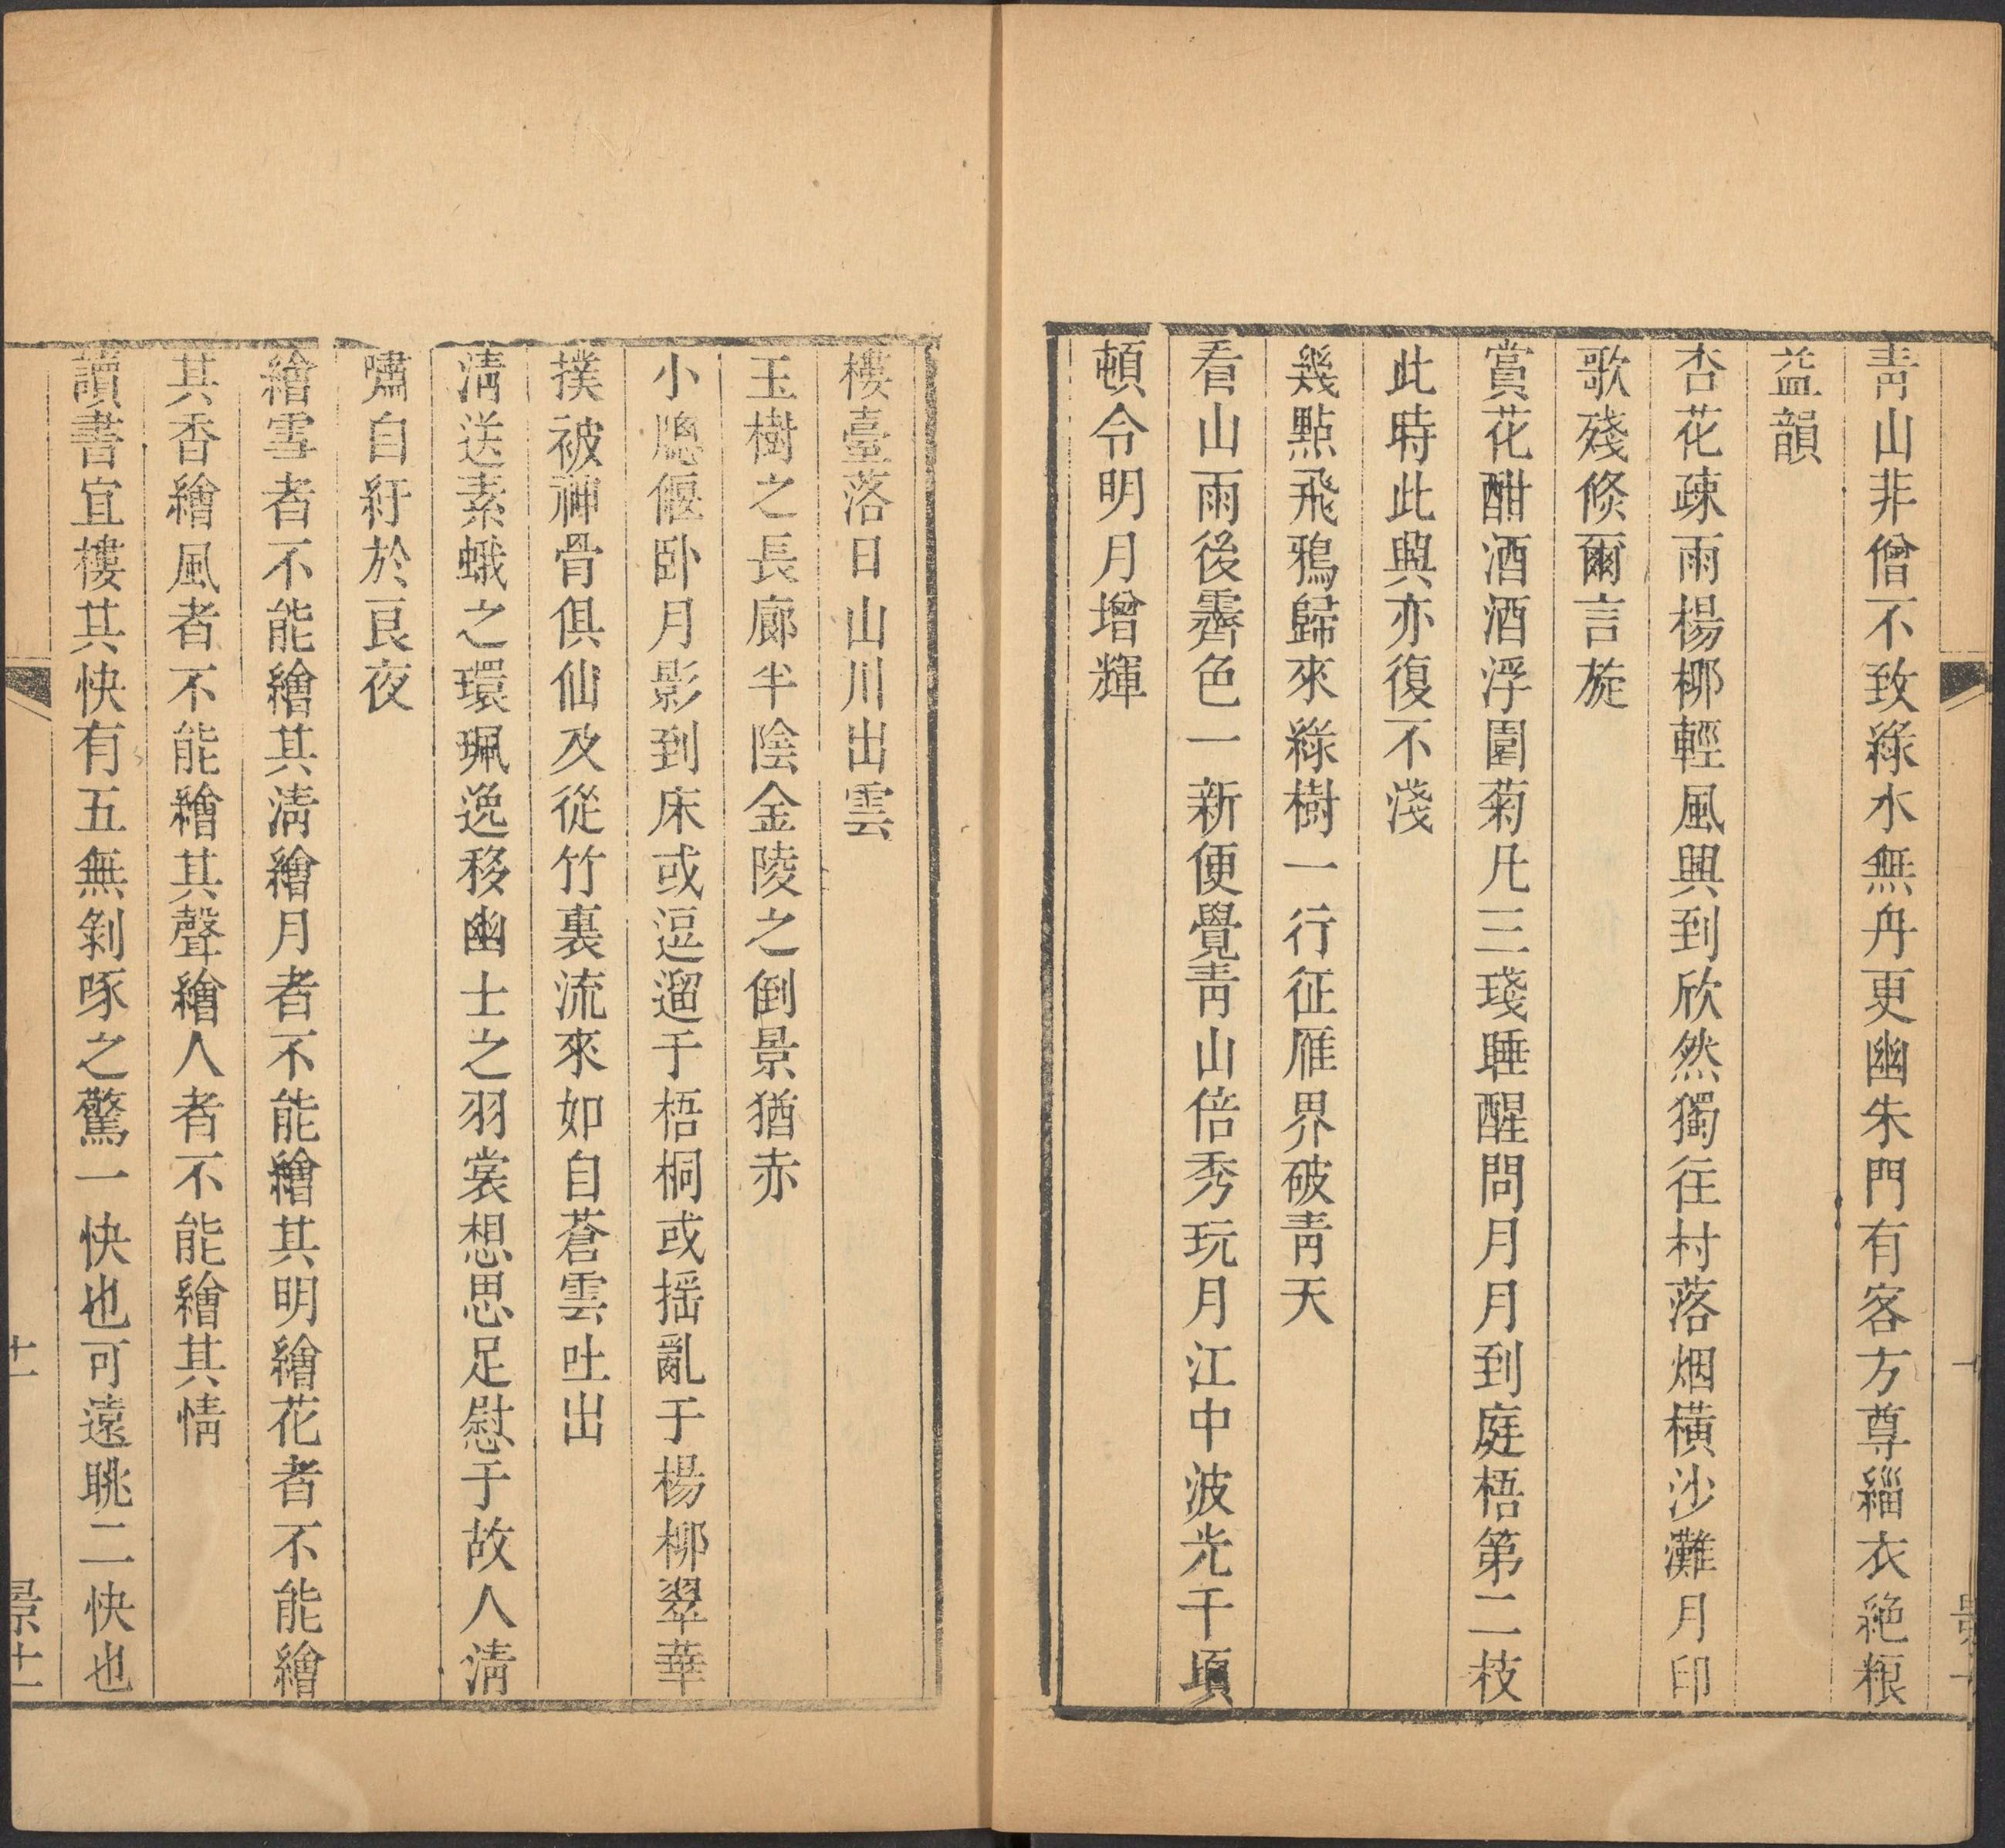 青山非僧不致綠水無舟更幽朱門有客方尊緇衣絕粮
益韻
杏花疎雨楊柳輕風興到欣然獨往村落烟橫沙灘月印
歌殘倐爾言旋
賞花酣酒酒浮園菊凡三琖睡醒問月月到庭梧第二枝
此時此興亦復不淺
幾點飛鴉歸來綠樹一行征雁界破青天
看山雨後霽色一新便覺青山倍秀玩月江中波光千頃
頓令明月增輝
樓臺落日山川出雲
玉樹之長廊半陰金陵之倒景猶赤
小牕偃卧月影到床或逗遛于梧桐或搖亂于楊柳翠華
撲被神骨俱仙及從竹裏流來如自蒼雲吐出
清送素蛾之環珮逸移幽士之羽裳想思足慰于故人清
嘯自紆於良夜
繪雪者不能繪其清繪月者不能繪其明繪花者不能繪
其香繪風者不能繪其聲繪人者不能繪其情
讀書宜樓其快有五無剝啄之驚一快也可遠眺二快也
十一
景十一